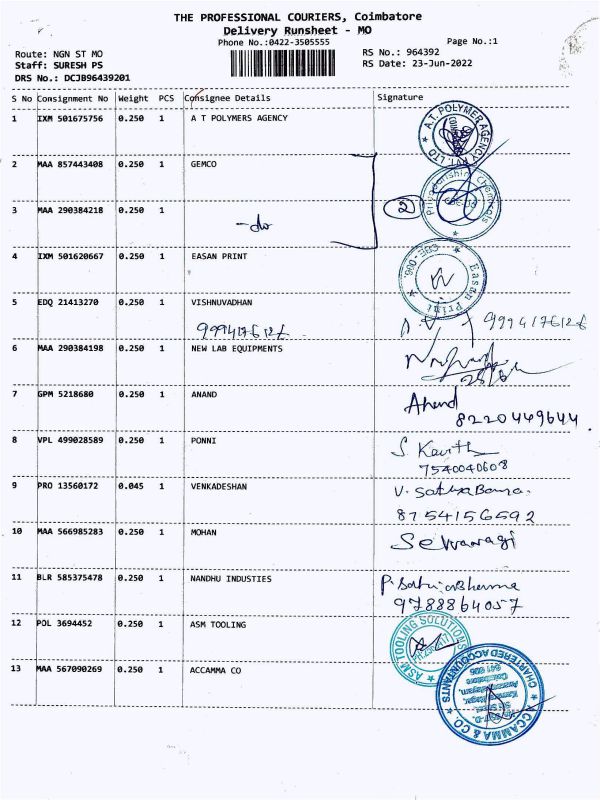 THE PROFESSIONAL COURIERS, Coimbatore
Delivery Runsheet - MO
Phone No.:0422-3505555
Page No.:1
Route: NGN ST MO
RS No.: 964392
Staff: SURESH PS
RS Date: 23-Jun-2022
DRS No.: DCJB96439201
S No Consignment No Weight PCS Consignee Details Signature
1 IXM 501675756 0.250 1 A T POLYMERS AGENCY
A.T. POLYMER AGENCY PVT. LTD
2 MAA 857443408 0.250 1 GEMCO
Priyadarshini Chemicals
3 MAA 290384218 0.250 1 -do 2
4 IXM 501620667 0.250 1 EASAN PRINT
Easan Print CBE-006
5 EDQ 21413270 0.250 1 VISHNUVADHAN
9994176126 9994176126
6 MAA 290384198 0.250 1 NEW LAB EQUIPMENTS
7 GPM 5218680 0.250 1 ANAND Anand
8220449644
8 VPL 499028589 0.250 1 PONNI S. Kavitha
7540040608
9 PRO 13560172 0.045 1 VENKADESHAN V. Sathya Bama
8754156592
10 MAA 566985283 0.250 1 MOHAN Selvaragi
11 BLR 585375478 0.250 1 NANDHU INDUSTIES
9788864057
12 POL 3694452 0.250 1 ASM TOOLING
ASM TOOLING SOLUTIONS
13 MAA 567090269 0.250 1 ACCAMMA CO
CCAMMA & CO. CHARTERED ACCOUNTANTS